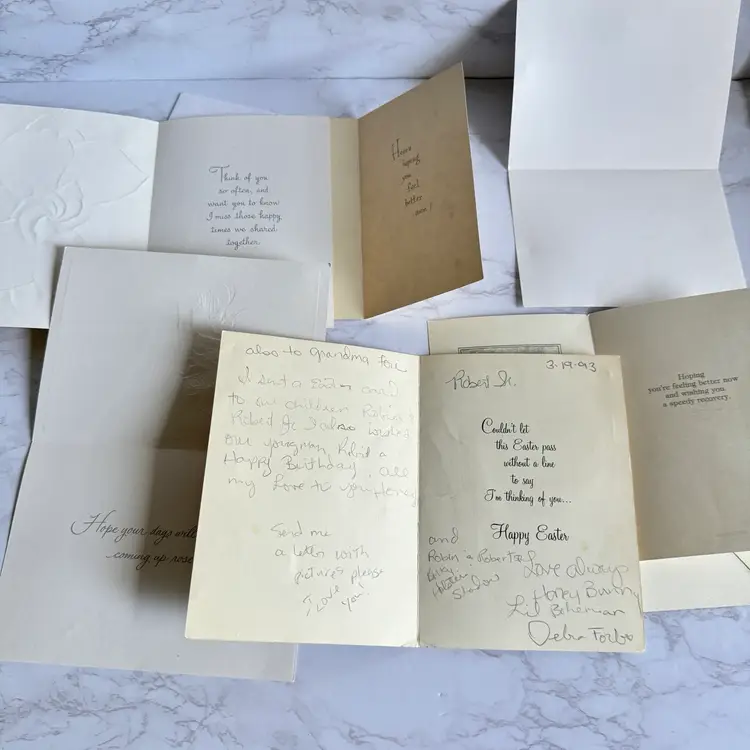 Think of you
so often, and
want you to know
I miss those happy
times we shared
together.
Here
hoping
you
feel
better
soon!
Hope your days will
coming up rose
Hoping
you're feeling better now
and wishing you
a speedy recovery.
also to Grandma
I sent a card
to our children
Robert Jr. I also
our youngman, a
Happy Birthday. all
my Love to you
Send me
a letter with
pictures please
I Love
you!
3-19-93
Robert Jr.
Couldn't let
this Easter pass
without a line
to say
I'm thinking of you...
Happy Easter
and
Robin & Robert
Shadow
Love always
Harley Bunny
Lil Bohemian
Debra